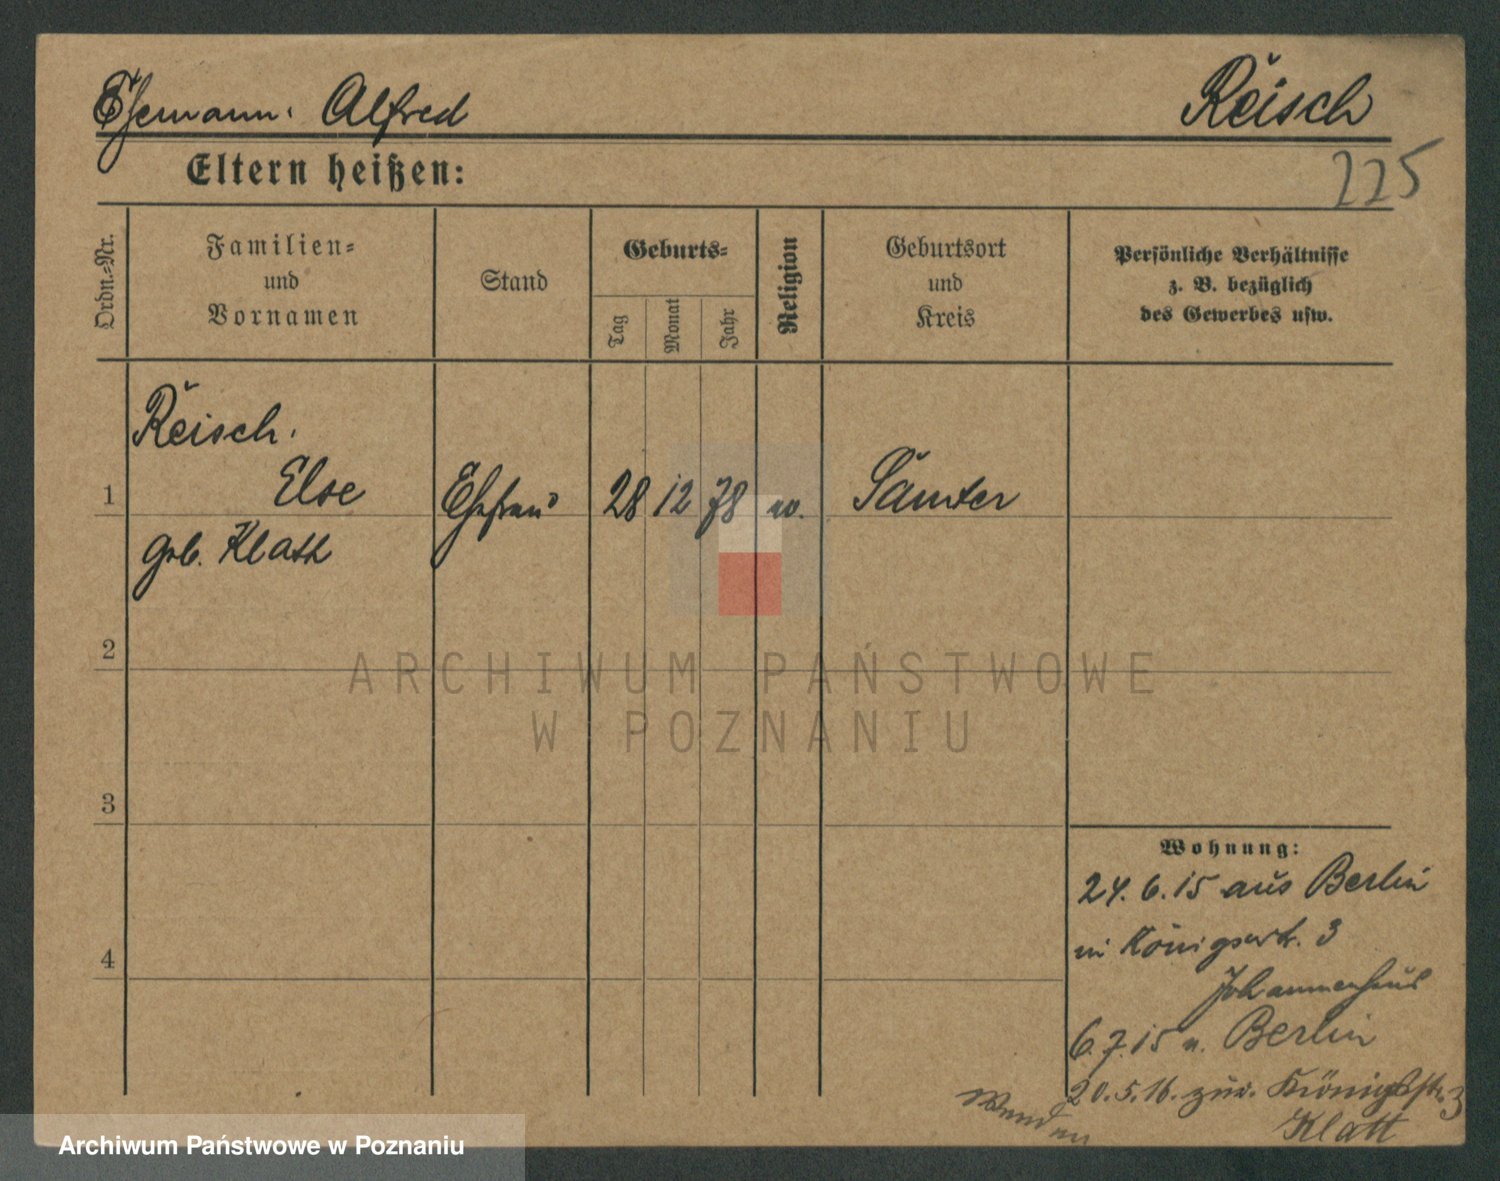 Ehemann: Alfred Reisch
Eltern heißen:
225
Ordn.-Nr.
Familien-
und
Vornamen
Stand
Geburts-
Tag
Monat
Jahr
Religion
Geburtsort
und
Kreis
Persönliche Verhältnisse
z. B. bezüglich
des Gewerbes usw.
Reisch.
1 Else Ehefrau 28 12 78 Samter
geb. Klatt
2
ARCHIWUM PAŃSTWOWE
W POZNANIU
3
Wohnung:
24. 6. 15 aus Berlin
in Königstr. 3
4
Johannenhaus
6. 7. 15 n. Berlin
20. 5. 16. zur. Königstr. 3
Wenden
Klatt
Archiwum Państwowe w Poznaniu